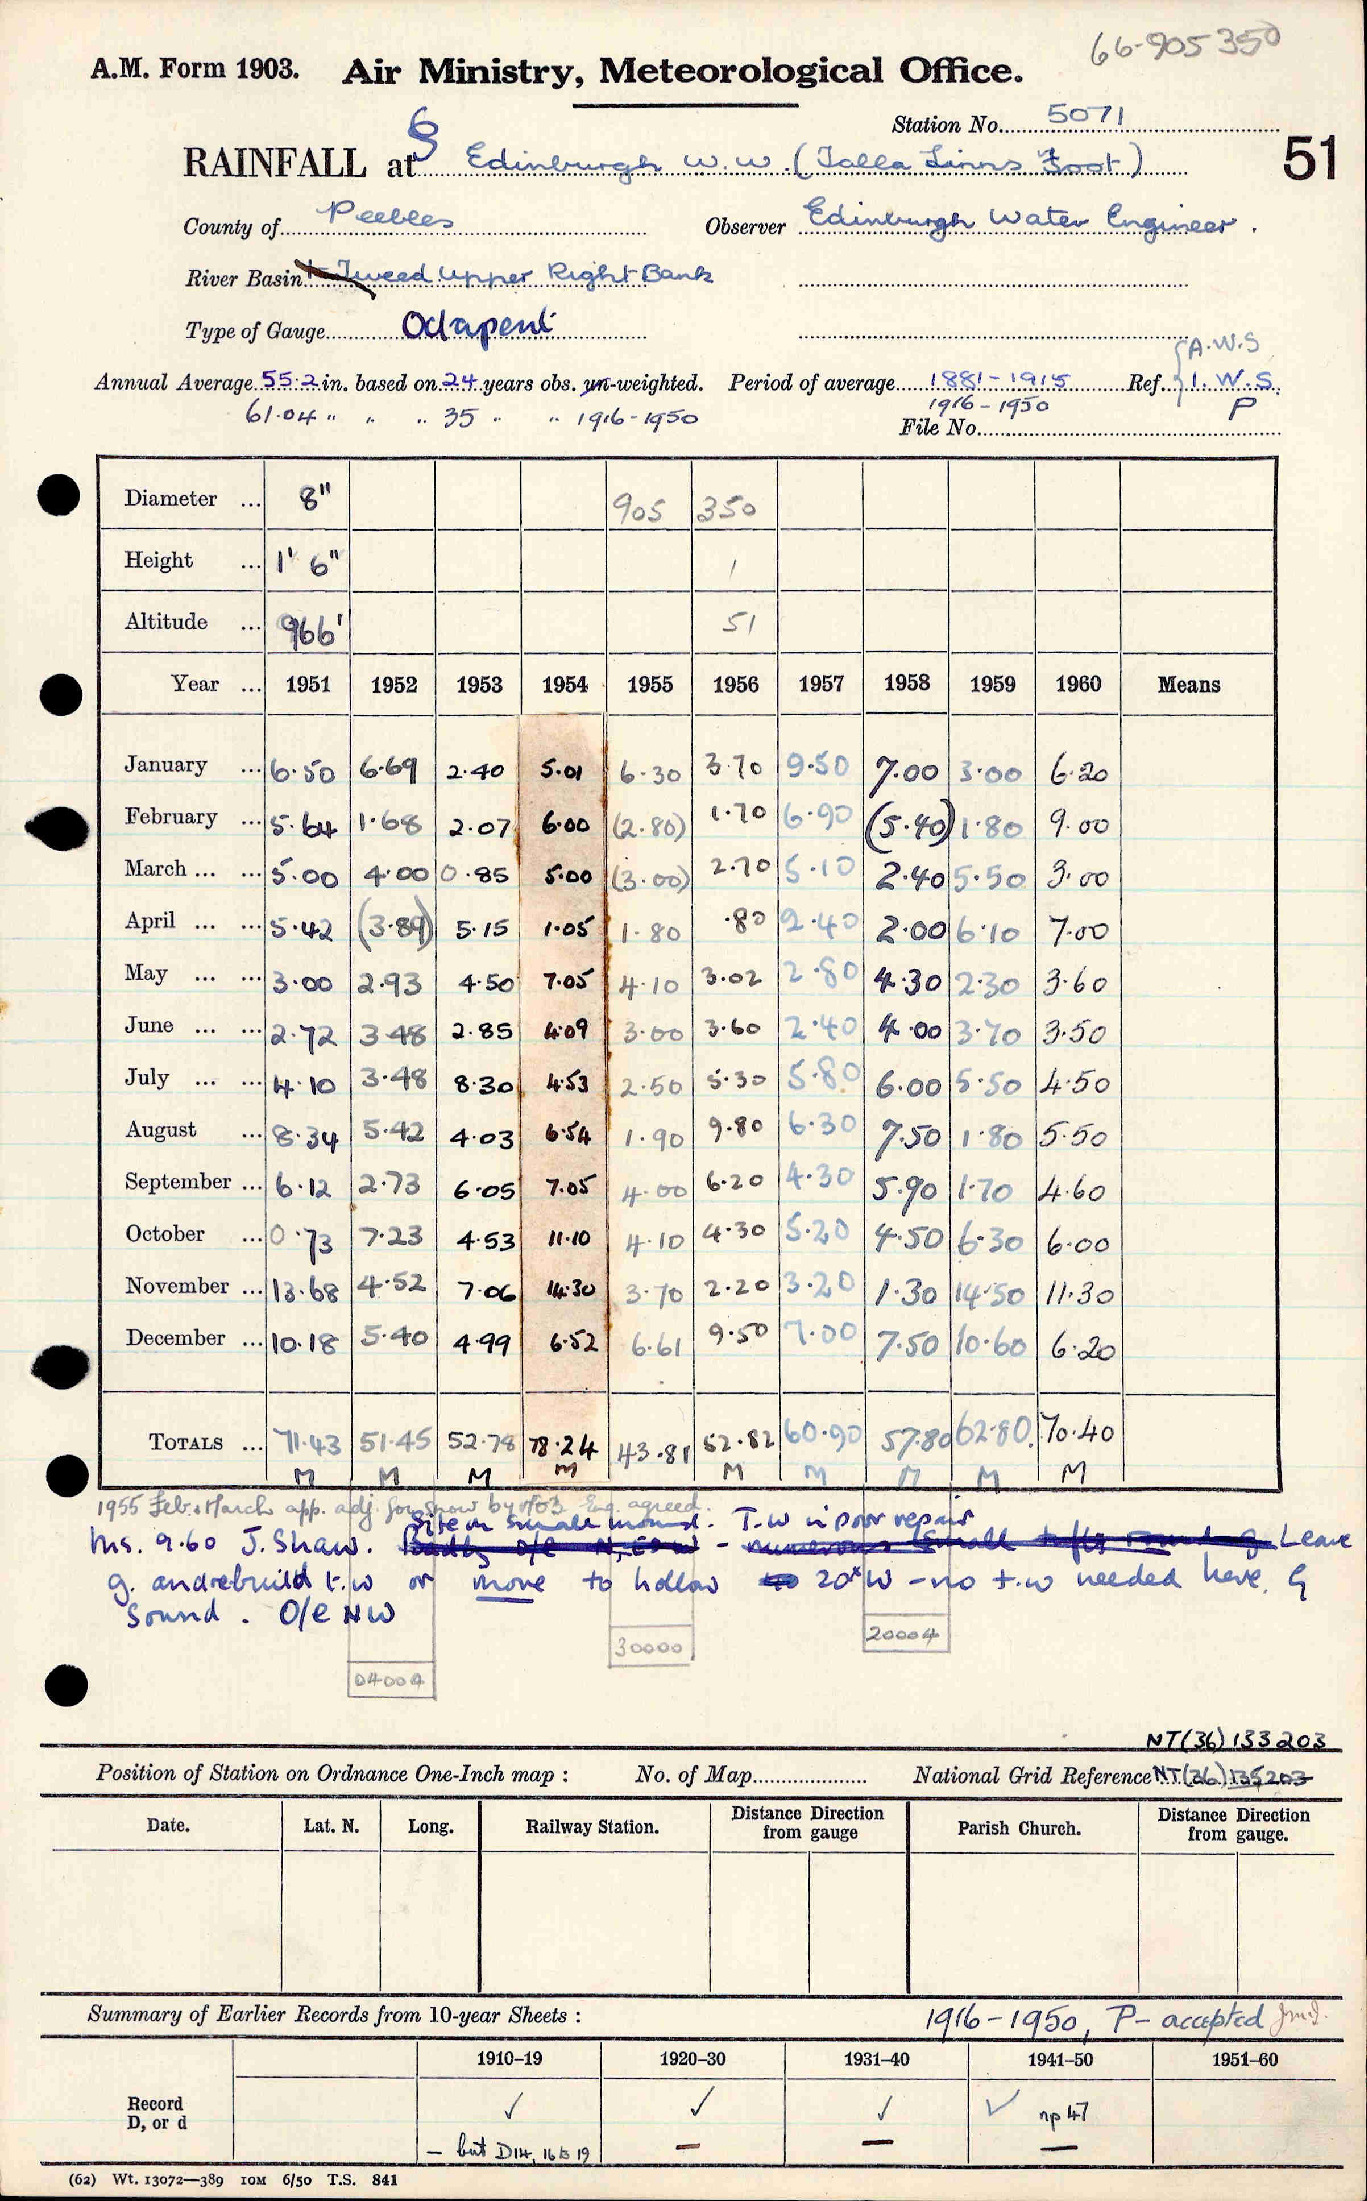 66-905350
A.M. Form 1903. Air Ministry, Meteorological Office.
Station No. 5071
RAINFALL at Edinburgh W.W. (Talla Linns Foot) 51
County of Peebles Observer Edinburgh Water Engineer.
River Basin Tweed Upper Right Bank
Type of Gauge Octapent
A.W.S
Annual Average 55.2 in. based on 24 years obs. un-weighted. Period of average 1881-1915 Ref. I.W.S.
61.04 " " " 35 " " 1916-1950 1916-1950 P
File No.
Diameter ... 8" 905 350
Height ... 1' 6" 1
Altitude ... 966' 51
Year ... 1951 1952 1953 1954 1955 1956 1957 1958 1959 1960 Means
January ... 6.50 6.69 2.40 5.01 6.30 3.70 9.50 7.00 3.00 6.20
February ... 5.64 1.68 2.07 6.00 (2.80) 1.70 6.90 (5.40) 1.80 9.00
March ... ... 5.00 4.00 0.85 5.00 (3.00) 2.70 5.10 2.40 5.50 3.00
April ... ... 5.42 (3.89) 5.15 1.05 1.80 .80 2.40 2.00 6.10 7.00
May ... ... 3.00 2.93 4.50 7.05 4.10 3.02 2.80 4.30 2.30 3.60
June ... ... 2.72 3.48 2.85 4.09 3.00 3.60 2.40 4.00 3.70 3.50
July ... ... 4.10 3.48 8.30 4.53 2.50 5.30 5.80 6.00 5.50 4.50
August ... 8.34 5.42 4.03 6.54 1.90 9.80 6.30 7.50 1.80 5.50
September ... 6.12 2.73 6.05 7.05 4.00 6.20 4.30 5.90 1.70 4.60
October ... 0.73 7.23 4.53 11.10 4.10 4.30 5.20 4.50 6.30 6.00
November ... 13.68 4.52 7.06 14.30 3.70 2.20 3.20 1.30 14.50 11.30
December ... 10.18 5.40 4.99 6.52 6.61 9.50 7.00 7.50 10.60 6.20
TOTALS ... 71.43 51.45 52.78 78.24 43.81 52.82 60.90 57.80 62.80 70.40
M M M M M M M M M
1955 Feb. & March app. adj. for snow by M.O.3 Eng. agreed.
Site on small mound. T.W in poor repair
Ins. 9.60 J. Shaw. Leave
g. and rebuild t.w or move to hollow 20x W - no t.w needed here. G
sound. O/e NW
20004
30000
04004
NT(36) 133203
Position of Station on Ordnance One-Inch map : No. of Map National Grid Reference NT(36) 135203
Date. Lat. N. Long. Railway Station. Distance Direction from gauge Parish Church. Distance Direction from gauge.
Summary of Earlier Records from 10-year Sheets : 1916-1950, P- accepted
1910–19 1920–30 1931–40 1941–50 1951–60
Record
D, or d ✓ ✓ ✓ ✓ np 47
- but D14, 16 to 19 — — —
(62) Wt. 13072—389 10M 6/50 T.S. 841